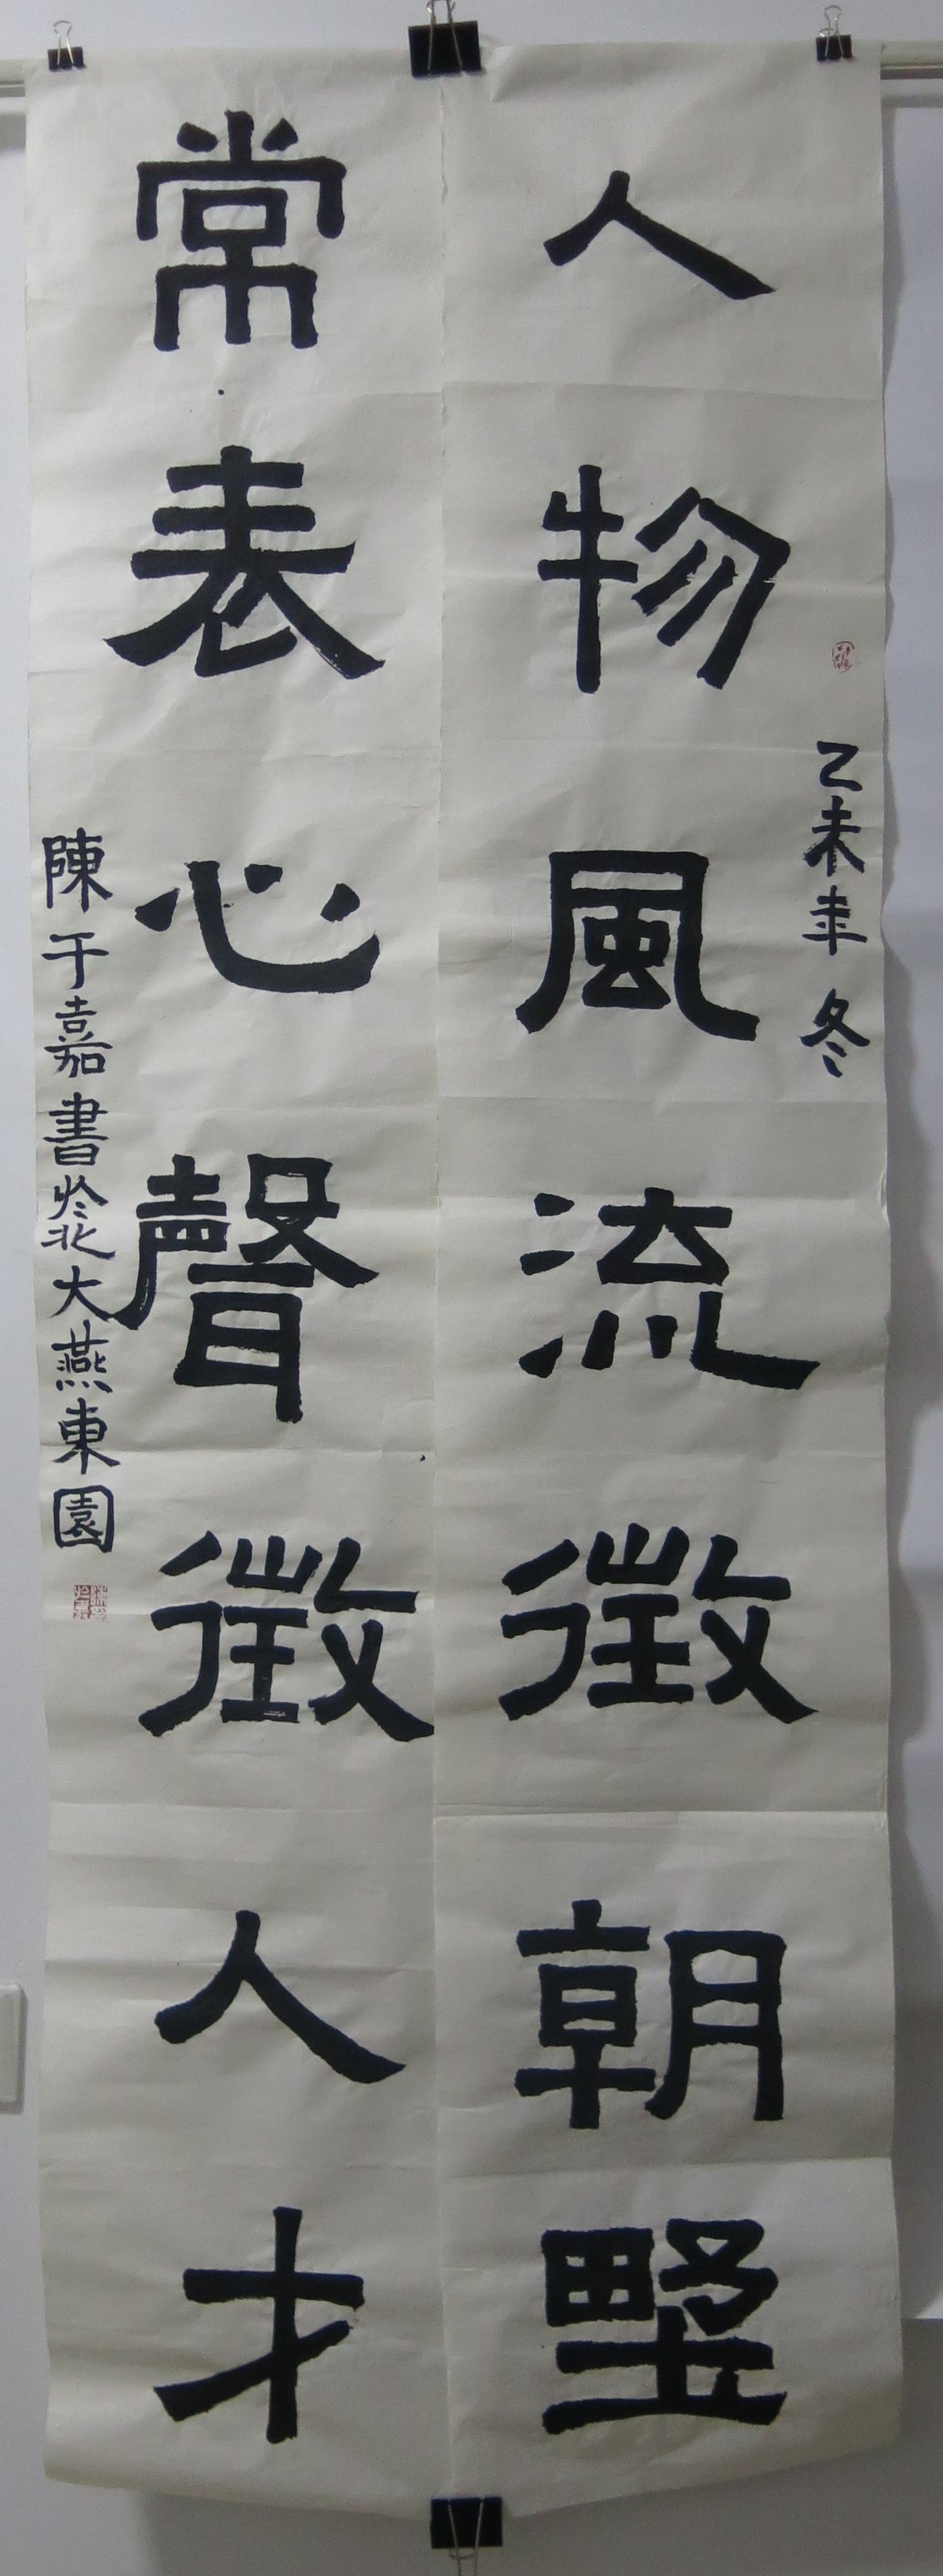 乙未年 冬
人物風流徵朝野
常表心聲徵人才
陳于嘉書於北大燕東園